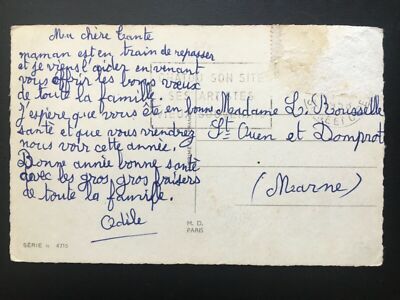 Ma chère Tante
maman est en train de repasser
et je viens l'aider en venant
vous offrir les bons vœux
de toute la famille.
J'espère que vous êtes en bonne
santé et que vous viendrez
nous voir cette année.
Bonne année bonne santé
avec les gros gros baisers
de toute la famille.
Odile
SON SITE
SES ARTISTES
Madame L. Rousselle
St-Ouen et Domprot
(Marne)
M. D.
PARIS
SÉRIE n 4715